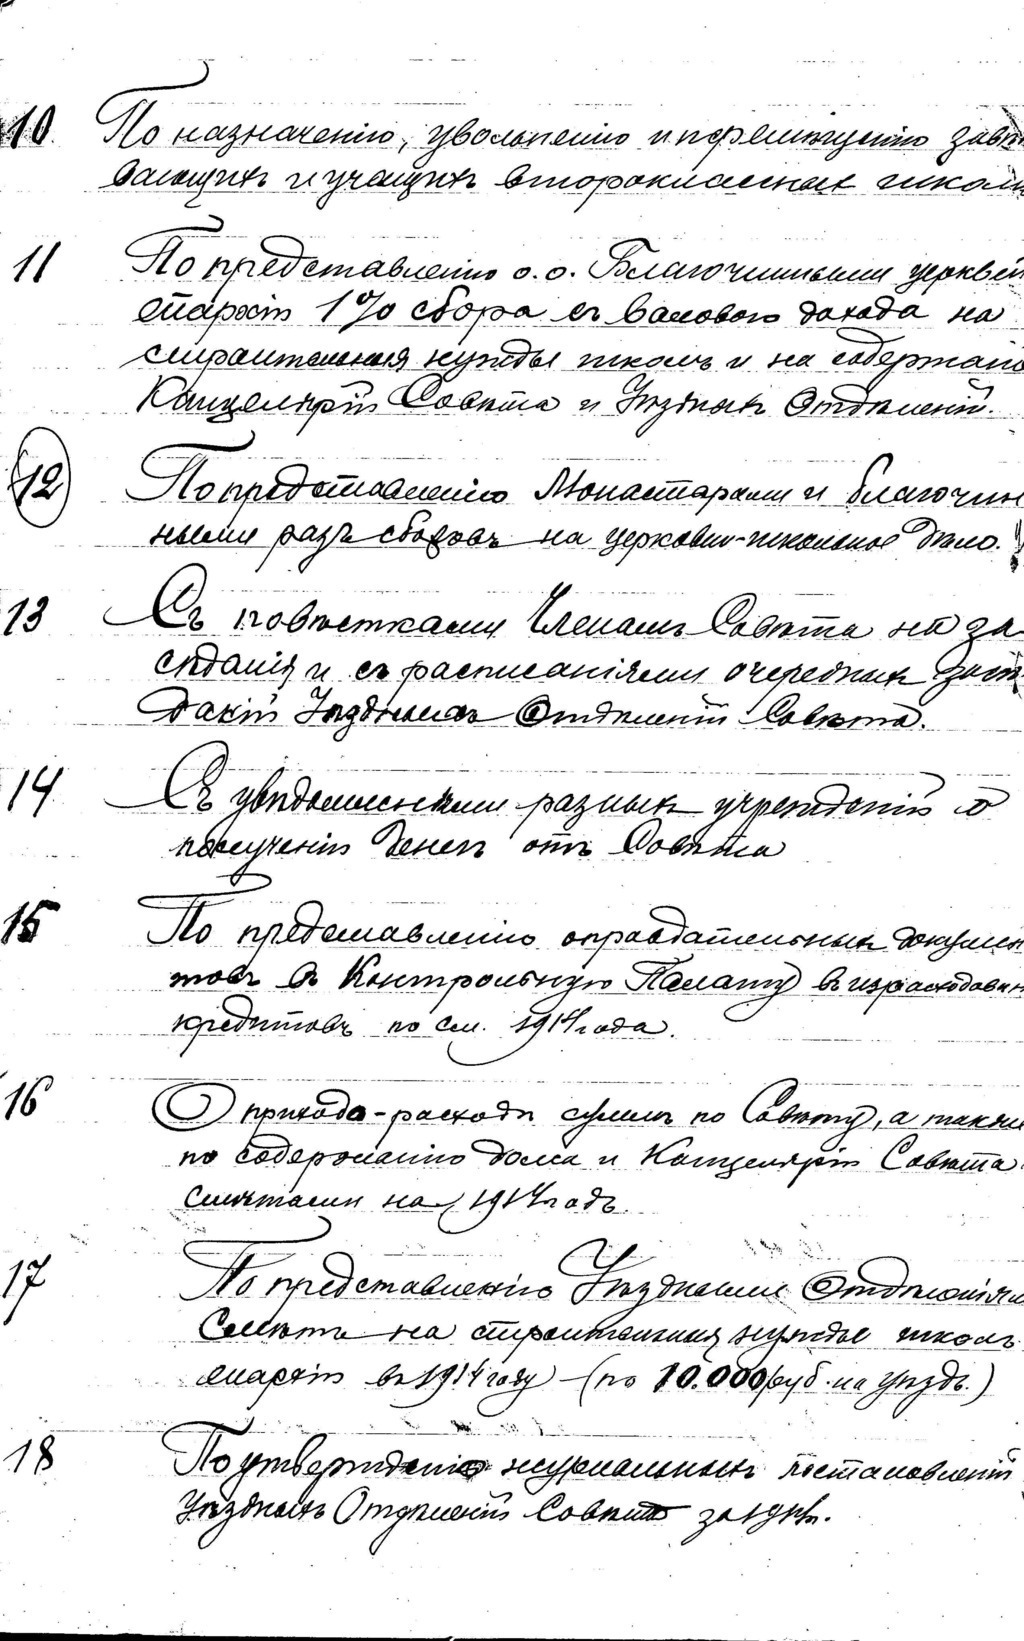 10 По назначенію, увольненію и перемѣщенію завѣ
вающихъ и учащихъ второклассныхъ школъ
11 По представленію о.о. Благочинными церквей
епархіи 1% сбора съ валового дохода на
строительныя нужды школъ и на содержаніе
Канцеляріи Совѣта и Уѣздныхъ Отдѣленій.
12 По представленію Монастырями и благочин
ными разн. сборовъ на церковно-школьное дѣло.
13 Съ повѣстками Членамъ Совѣта на за
сѣданія и съ расписаніями очередныхъ засѣ
даній Уѣзднымъ Отдѣленій Совѣта.
14 Съ увѣдомленіями разныхъ учрежденій о
полученіи денегъ отъ Совѣта
15 По представленію оправдательныхъ докумен
товъ въ Контрольную Палату въ израсходован
кредитовъ по см. 1914 года.
16 О приходо-расходѣ суммъ по Совѣту, а также
по содержанію дома и Канцеляріи Совѣта
смѣтами на 1914 годъ.
17 По представленію Уѣздными Отдѣленіями
Смѣтъ на строительныя нужды школъ
епархіи въ 1914 году (по 10.000 руб. на уѣздъ.)
18 По утвержденію журнальныхъ постановленій
Уѣздныхъ Отдѣленій Совѣта за 1914 г.